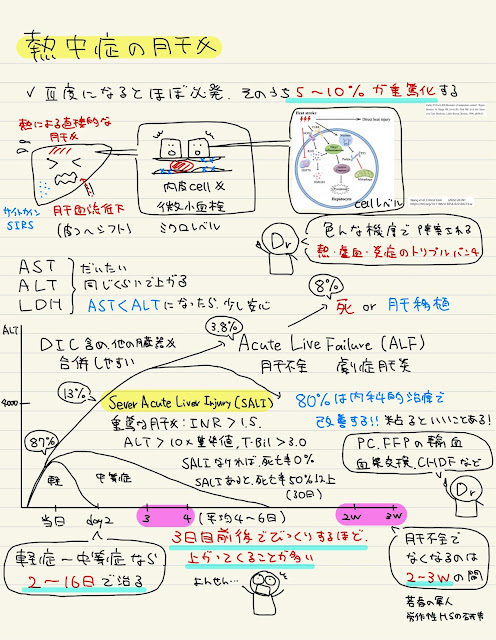 熱中症の肝障害
✓ Ⅲ度になるとほぼ必発、そのうち5〜10%が重篤化する
熱による直接的な
肝メ
サイトカイン
SIRS
肝血流低下
(皮フへシフト)
内皮cellメ
微小血栓
ミクロレベル
Heat stroke
Direct heat injury
Hepatocyte
cellレベル
色んな機序で障害される
熱・虚血・炎症のトリプルパンチ
Dr
AST
ALT
LDH
だいたい
同じくらいで上がる
AST<ALTになったら、少し安心
8%
死 or 肝移植
3.8%
ALT
DIC含め、他の臓器メ
合併しやすい
Acute Live Failure (ALF)
肝不全 劇症肝炎
13%
Sever Acute Liver Injury (SALI)
重篤な肝メ:INR>1.5.
ALT>10×基準値, T-Bil>3.0
80%は内科的治療で
改善する!! 粘るといいことある!
SALIなければ、死亡率0%
SALIあると、死亡率50%以上
(30日)
87%
軽
中等症
PC, FFPの輸血
血漿交換、CHDFなど
Dr
当日
day2
3
4
(平均4〜6日)
2w
3w
軽症〜中等症なら
2〜16日で治る
3日目前後でびっくりするほど、
上がってくることが多い
よんせん…
肝不全で
なくなるのは
2〜3wの間
若者の軍人
労作性HSの研究